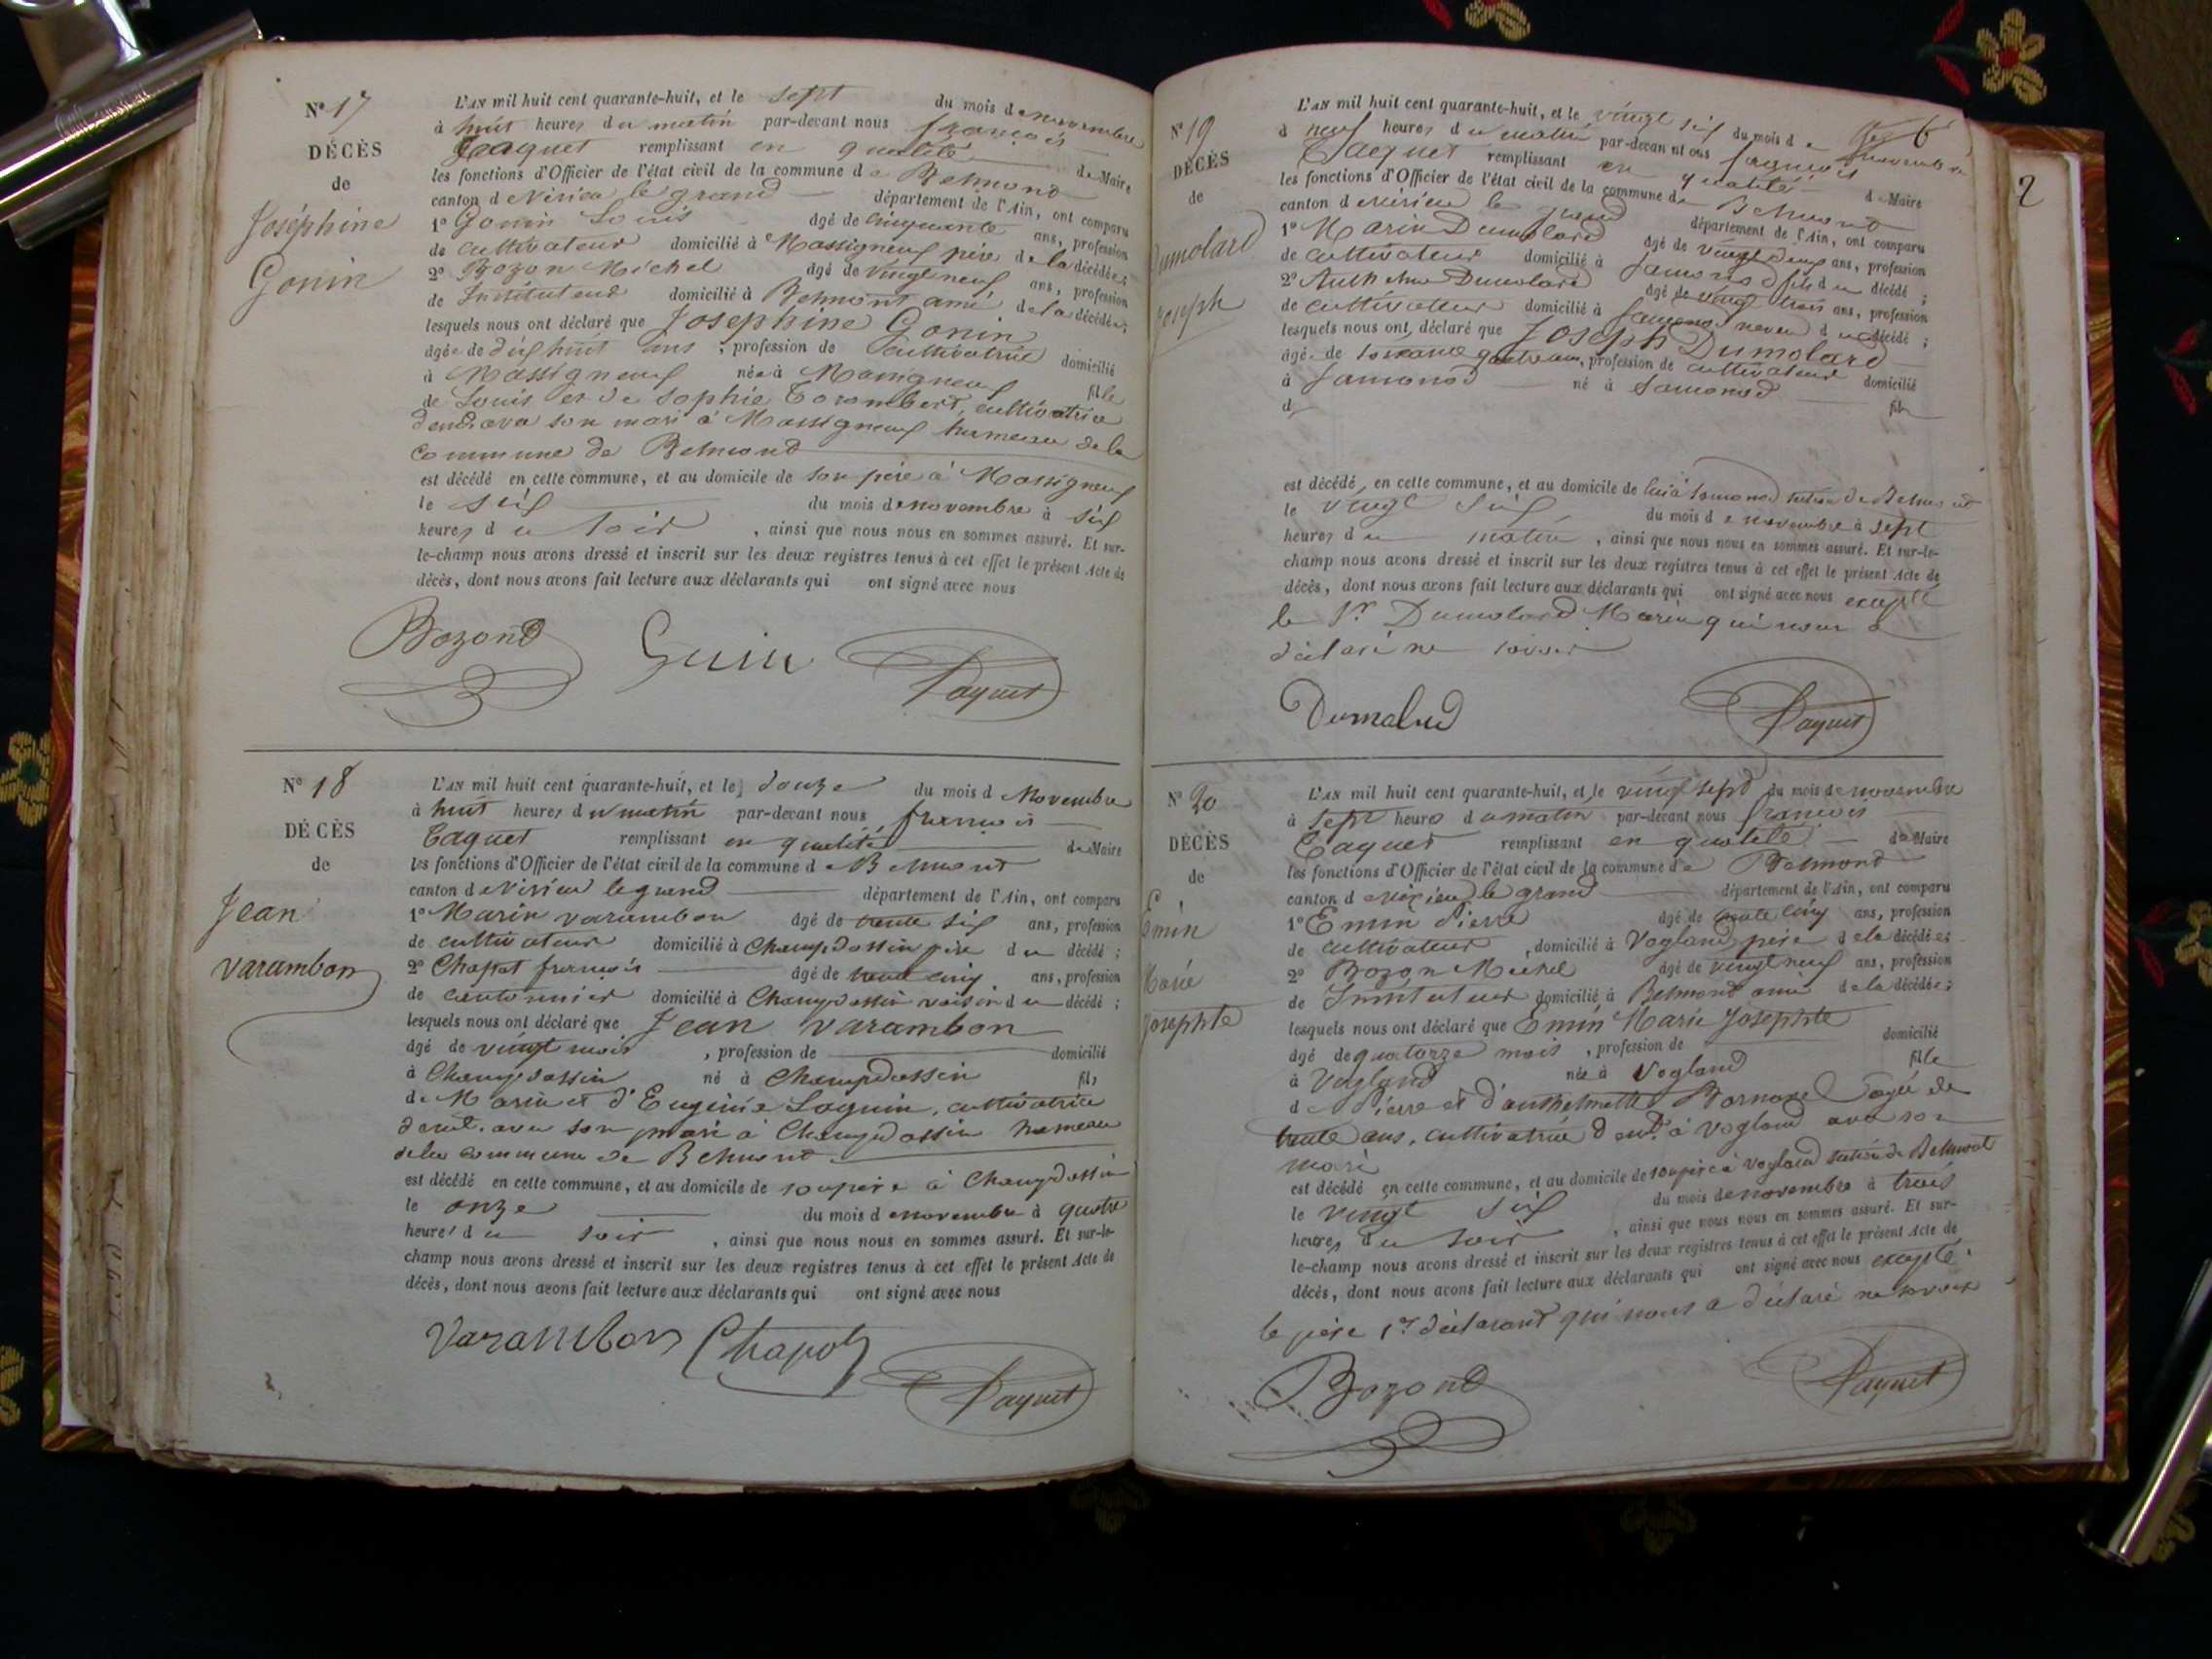 N° 17
DÉCÈS
de
Joséphine
Gonin
L'AN mil huit cent quarante-huit, et le sept du mois de novembre
à huit heures du matin par-devant nous françois
Taquet remplissant en qualité de Maire
les fonctions d'Officier de l'état civil de la commune de Belmond
canton de Virieu le grand département de l'Ain, ont comparu
1° Gonin Louis âgé de cinquante ans, profession
de cultivateur domicilié à Massigneux père de la décédée;
2° Bozon Michel âgé de vingt neuf ans, profession
de Instituteur domicilié à Belmont ami de la décédée;
lesquels nous ont déclaré que Josephine Gonin
âgée de dix huit ans, profession de cultivatrice domicilié
à Massigneux née à Massigneux fille
de Louis et de Sophie Corambert, cultivatrice
demt. avec son mari à Massigneux hameau de la
Commune de Belmond
est décédé en cette commune, et au domicile de son père à Massigneux
le six du mois de novembre à six
heures du soir, ainsi que nous nous en sommes assuré. Et sur-
le-champ nous avons dressé et inscrit sur les deux registres tenus à cet effet le présent Acte de
décès, dont nous avons fait lecture aux déclarants qui ont signé avec nous
Bozond Taquet
N° 18
DÉCÈS
de
Jean
varambon
L'AN mil huit cent quarante-huit, et le douze du mois d Novembre
à huit heures du matin par-devant nous françois
Taquet remplissant en qualité de Maire
les fonctions d'Officier de l'état civil de la commune de Belmont
canton de Virieu le grand département de l'Ain, ont comparu
1° Marin varambon âgé de trente six ans, profession
de cultivateur domicilié à Champdossin père du décédé;
2° Chapot françois âgé de trente cinq ans, profession
de cantonnier domicilié à Champdossin voisin du décédé;
lesquels nous ont déclaré que Jean varambon
âgé de vingt mois, profession de domicilié
à Champdossin né à Champdossin fils
de Marin et d'Eugénie Loguin, cultivatrice
demt. avec son mari à Champdossin hameau
de la commune de Belmont
est décédé en cette commune, et au domicile de son père à Champdossin
le onze du mois de novembre à quatre
heures du soir, ainsi que nous nous en sommes assuré. Et sur-le-
champ nous avons dressé et inscrit sur les deux registres tenus à cet effet le présent Acte de
décès, dont nous avons fait lecture aux déclarants qui ont signé avec nous
Varambon Chapot
Taquet
N° 19
DÉCÈS
de
Dumolard
joseph
L'AN mil huit cent quarante-huit, et le vingt six du mois de novembre
à neuf heures du matin par-devant nous françois
Taquet remplissant en qualité de Maire
les fonctions d'Officier de l'état civil de la commune de Belmont
canton de virieu le grand département de l'Ain, ont comparu
1° Marin Dumolard âgé de vingt deux ans, profession
de cultivateur domicilié à Samonod fils du décédé;
2° Anthelme Dumolard âgé de vingt trois ans, profession
de cultivateur domicilié à Samonod neveu du décédé;
lesquels nous ont déclaré que Joseph Dumolard
âgé de soixante quatre ans, profession de cultivateur domicilié
à Samonod né à Samonod fils
d
est décédé, en cette commune, et au domicile de lui à Samonod section de Belmond
le vingt six du mois de novembre à sept
heures du matin, ainsi que nous nous en sommes assuré. Et sur-le-
champ nous avons dressé et inscrit sur les deux registres tenus à cet effet le présent Acte de
décès, dont nous avons fait lecture aux déclarants qui ont signé avec nous excepté
le Sr. Dumolard Marin qui nous a
déclaré ne savoir
Taquet
2
N° 20
DÉCÈS
de
Emin
Marie
Josephte
L'AN mil huit cent quarante-huit, et le vingt sept du mois de novembre
à sept heures du matin par-devant nous françois
Taquet remplissant en qualité de Maire
les fonctions d'Officier de l'état civil de la commune de Belmond
canton de virieu le grand département de l'Ain, ont comparu
1° Emin Pierre âgé de trente cinq ans, profession
de cultivateur, domicilié à Vogland père de la décédée
2° Bozon Michel âgé de vingt neuf ans, profession
de Instituteur domicilié à Belmond ami de la décédée;
lesquels nous ont déclaré que Emin Marie Josephte
âgé de quatorze mois, profession de domicilié
à Vogland née à Vogland fille
de Pierre et d'anthelmette âgée de
trente ans, cultivatrice demt. à Vogland avec son
mari
est décédé en cette commune, et au domicile de son père à Vogland section de Belmont
le vingt six du mois de novembre à trois
heures du soir, ainsi que nous nous en sommes assuré. Et sur-
le-champ nous avons dressé et inscrit sur les deux registres tenus à cet effet le présent Acte de
décès, dont nous avons fait lecture aux déclarants qui ont signé avec nous excepté
le père 1er déclarant qui nous a déclaré ne savoir
Bozond Taquet